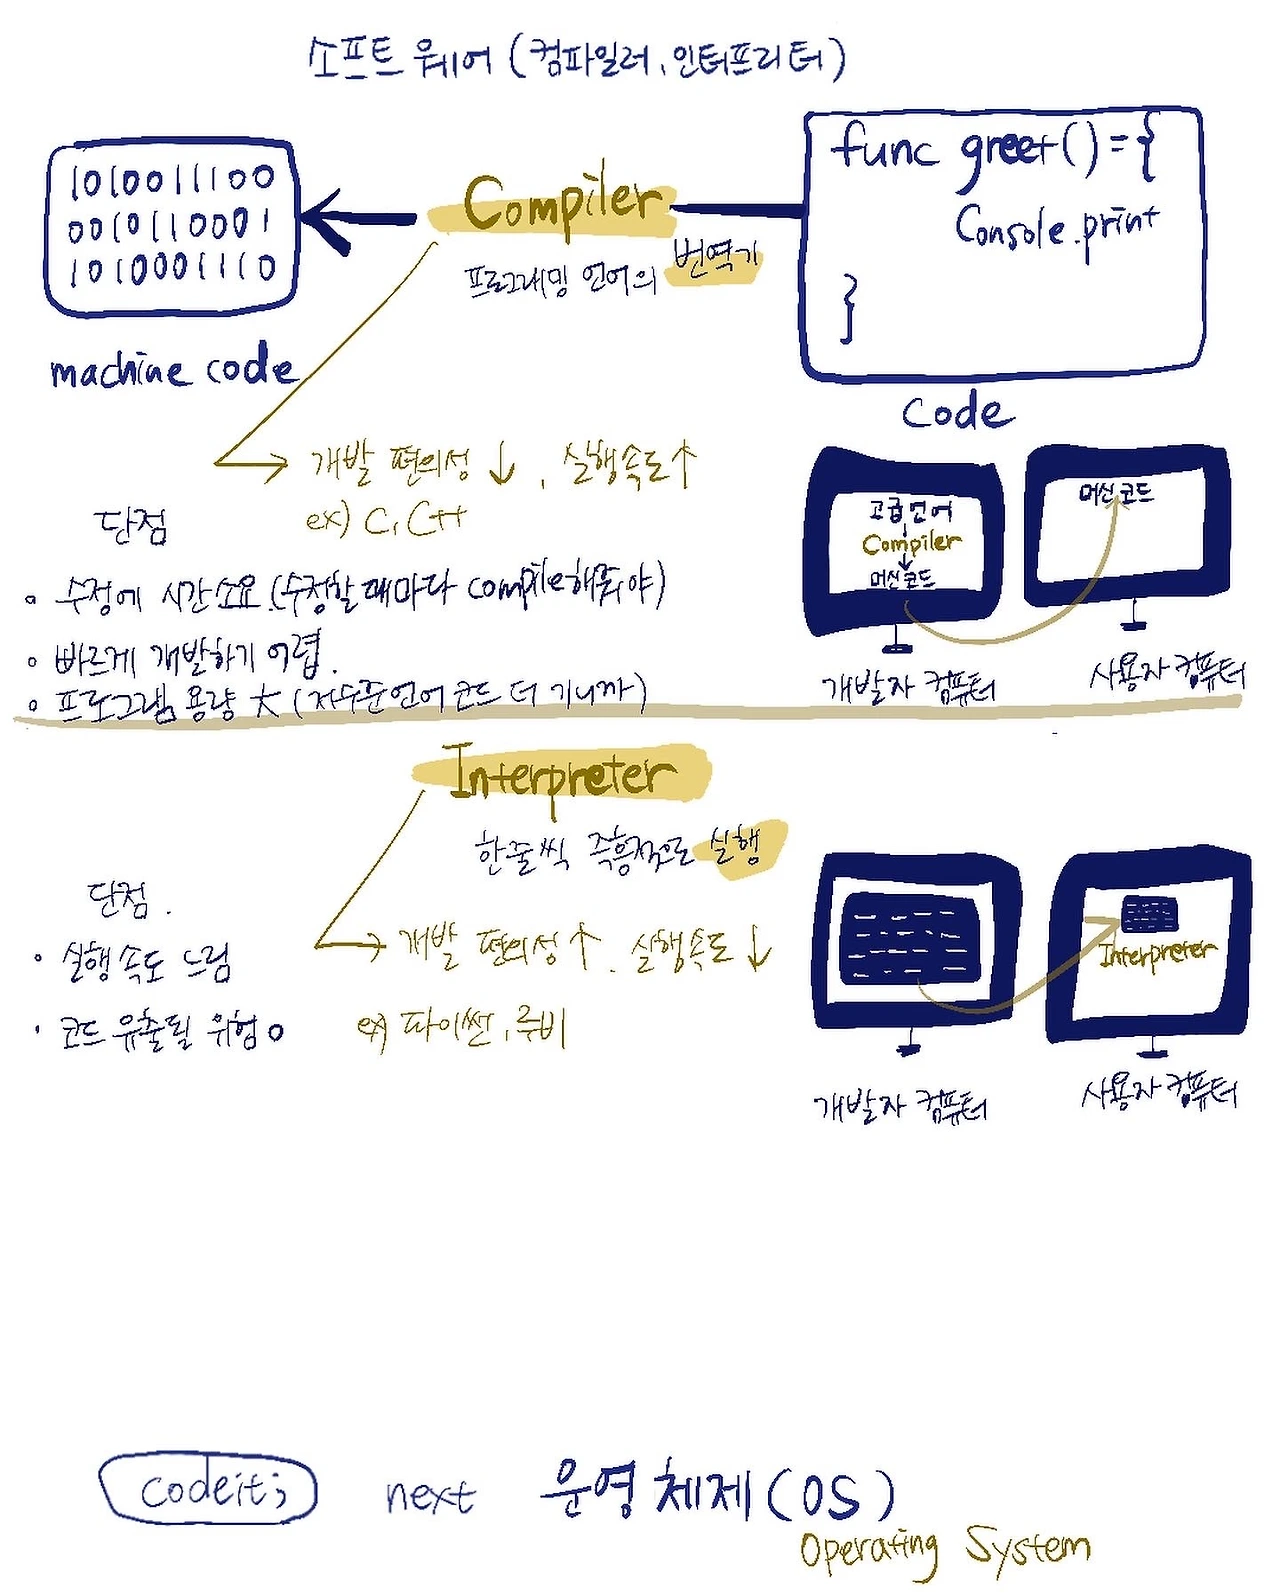 소프트웨어 (컴파일러, 인터프리터)
1010011100
0010110001
1010001110
machine code
Compiler
프로그래밍 언어의 번역기
func greet() = {
Console.print
}
Code
개발 편의성 ↓, 실행속도 ↑
ex) C, C++
단점
• 수정에 시간 소요 (수정할 때마다 compile 해줘야)
• 빠르게 개발하기 어렵.
• 프로그램 용량 大 (저수준언어 코드 더 기니까)
고급언어
Compiler
머신코드
개발자 컴퓨터
머신코드
사용자 컴퓨터
Interpreter
한줄씩 즉흥적으로 실행
개발 편의성 ↑. 실행속도 ↓
ex) 파이썬, 루비
단점.
• 실행 속도 느림
• 코드 유출될 위험 o
개발자 컴퓨터
Interpreter
사용자 컴퓨터
codeit;
next 운영체제 (OS)
Operating System